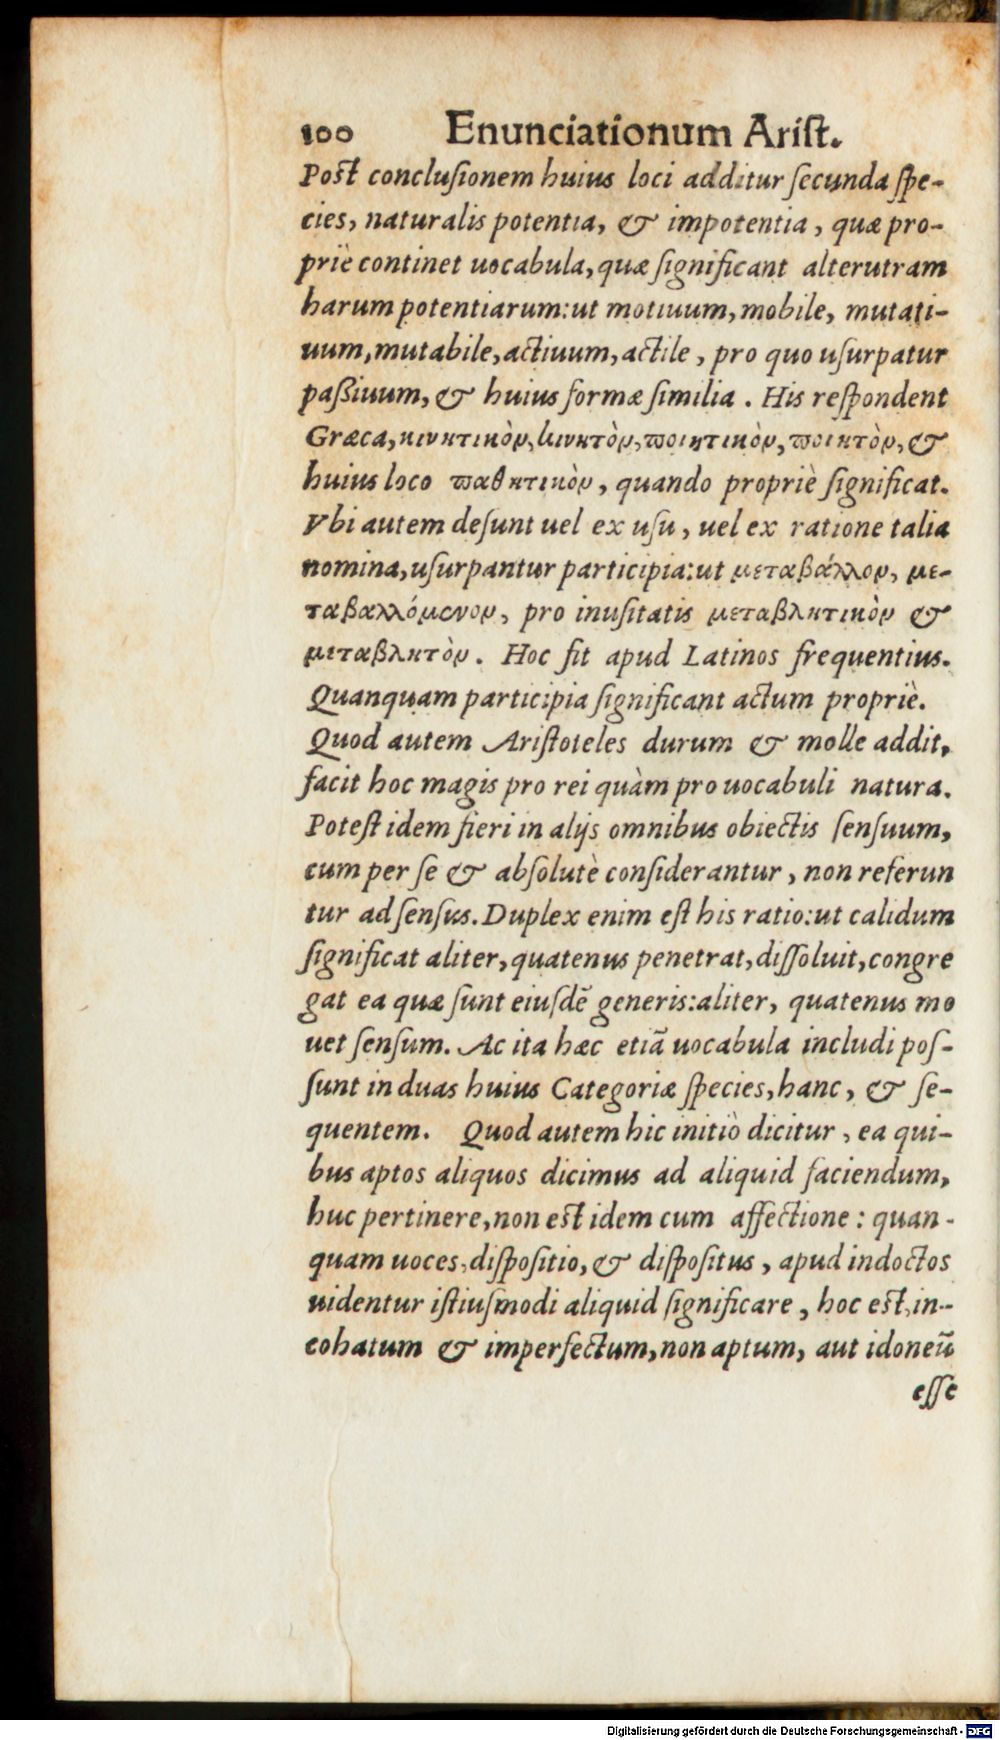 100 Enunciationum Arist.
Post conclusionem huius loci additur secunda spe-
cies, naturalis potentia, & impotentia, quæ pro-
priè continet uocabula, quæ significant alterutram
harum potentiarum: ut motiuum, mobile, mutati-
uum, mutabile, actiuum, actile, pro quo usurpatur
paßiuum, & huius formæ similia. His respondent
Græca, κινητικὸν, κινητὸν, ποιητικὸν, ποιητὸν, &
huius loco παθητικὸν, quando propriè significat.
Vbi autem desunt uel ex usu, uel ex ratione talia
nomina, usurpantur participia: ut μεταβάλλον, με-
ταβαλλόμενον, pro inusitatis μεταβλητικὸν &
μεταβλητὸν. Hoc fit apud Latinos frequentius.
Quanquam participia significant actum propriè.
Quod autem Aristoteles durum & molle addit,
facit hoc magis pro rei quàm pro uocabuli natura.
Potest idem fieri in alijs omnibus obiectis sensuum,
cum per se & absolutè considerantur, non referun
tur ad sensus. Duplex enim est his ratio: ut calidum
significat aliter, quatenus penetrat, dissoluit, congre
gat ea quæ sunt eiusdē generis: aliter, quatenus mo
uet sensum. Ac ita hæc etiā uocabula includi pos-
sunt in duas huius Categoriæ species, hanc, & se-
quentem. Quod autem hic initiò dicitur, ea qui-
bus aptos aliquos dicimus ad aliquid faciendum,
huc pertinere, non est idem cum affectione: quan-
quam uoces, dispositio, & dispositus, apud indoctos
uidentur istiusmodi aliquid significare, hoc est, in-
cohatum & imperfectum, non aptum, aut idoneū
esse
Digitalisierung gefördert durch die Deutsche Forschungsgemeinschaft - DFG